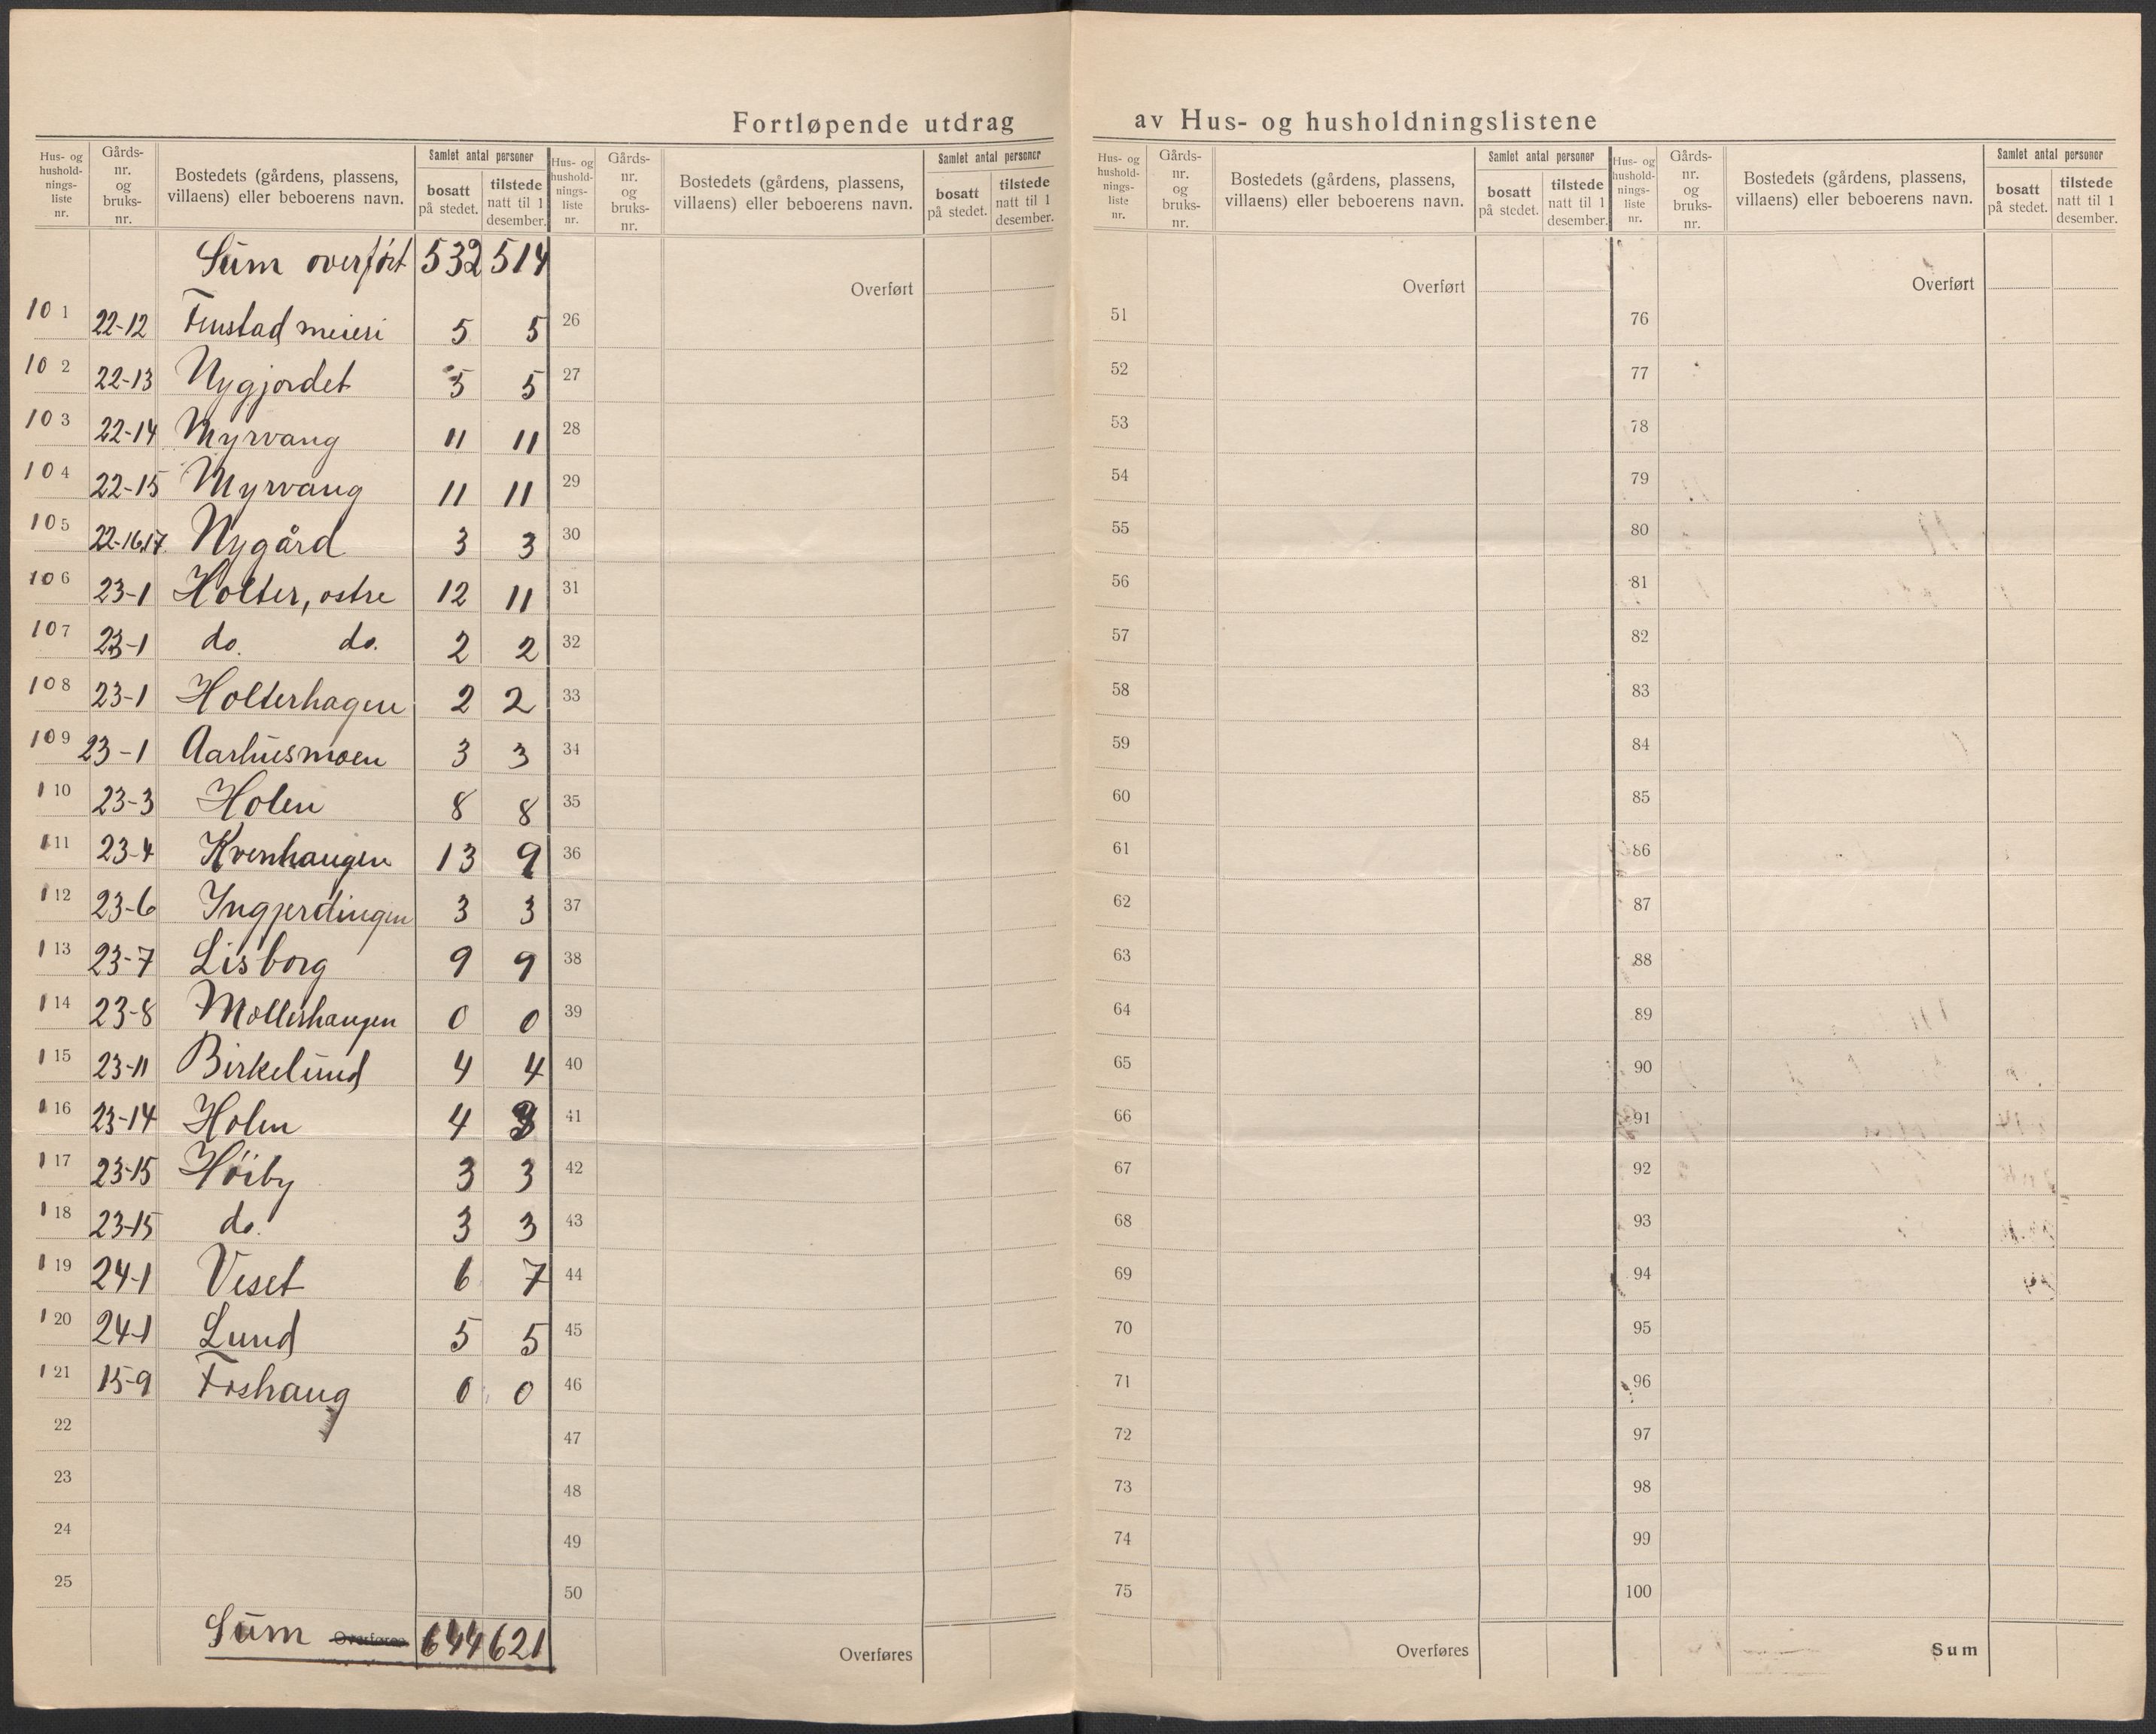 Fortløpende utdrag av Hus- og husholdningslistene
Hus- og hushold-nings-liste nr. Gårds-nr. og bruks-nr. Bostedets (gårdens, plassens, villaens) eller beboerens navn. Samlet antal personer bosatt på stedet. tilstede natt til 1 desember.
Sum overført 532 514
101 22-12 Fenstad meieri 5 5
102 22-13 Nygjordet 5 5
103 22-14 Myrvang 11 11
104 22-15 Myrvang 11 11
105 22-16,17 Nygård 3 3
106 23-1 Holter, østre 12 11
107 23-1 do. do. 2 2
108 23-1 Holterhagen 2 2
109 23-1 Aarhusmoen 3 3
110 23-3 Holen 8 8
111 23-4 Kvernhaugen 13 9
112 23-6 Ingjerdingen 3 3
113 23-7 Lisborg 9 9
114 23-8 Mollerhaugen 0 0
115 23-11 Birkelund 4 4
116 23-14 Holen 4 3
117 23-15 Höiby 3 3
118 23-15 do. 3 3
119 24-1 Veset 6 7
120 24-1 Lund 5 5
121 15-9 Foshaug 0 0
22
23
24
25
Sum Overføres 644 621
Hus- og hushold-nings-liste nr. Gårds-nr. og bruks-nr. Bostedets (gårdens, plassens, villaens) eller beboerens navn. Samlet antal personer bosatt på stedet. tilstede natt til 1 desember.
Overført
26
27
28
29
30
31
32
33
34
35
36
37
38
39
40
41
42
43
44
45
46
47
48
49
50
Overføres
Hus- og hushold-nings-liste nr. Gårds-nr. og bruks-nr. Bostedets (gårdens, plassens, villaens) eller beboerens navn. Samlet antal personer bosatt på stedet. tilstede natt til 1 desember.
Overført
51
52
53
54
55
56
57
58
59
60
61
62
63
64
65
66
67
68
69
70
71
72
73
74
75
Overføres
Hus- og hushold-nings-liste nr. Gårds-nr. og bruks-nr. Bostedets (gårdens, plassens, villaens) eller beboerens navn. Samlet antal personer bosatt på stedet. tilstede natt til 1 desember.
Overført
76
77
78
79
80
81
82
83
84
85
86
87
88
89
90
91
92
93
94
95
96
97
98
99
100
Sum